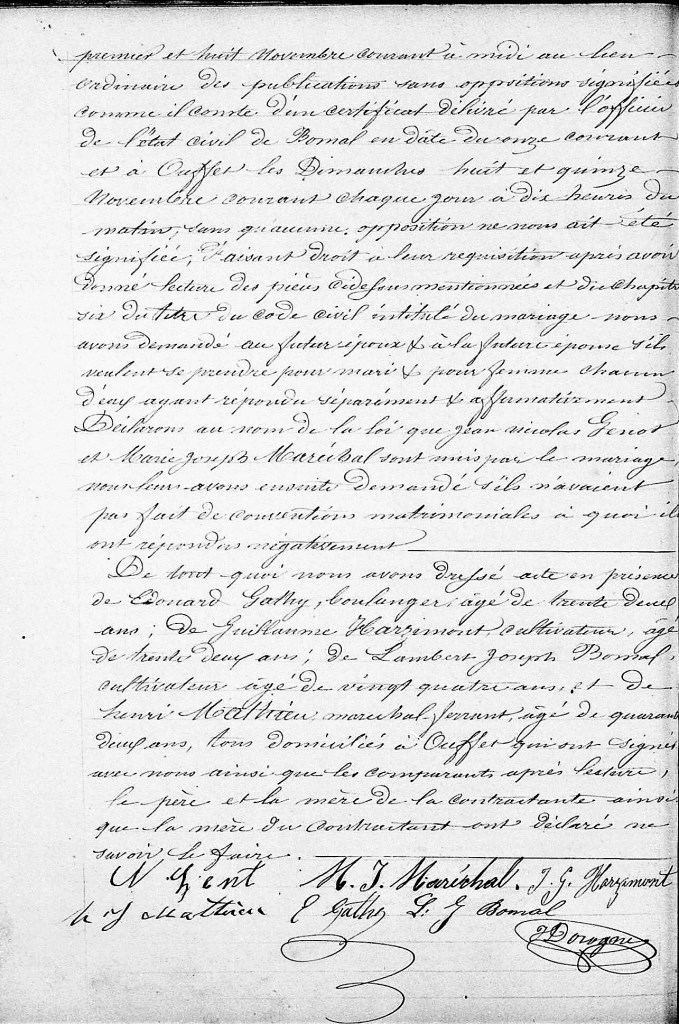 premier et huit Novembre courant à midi au lieu
ordinaire des publications sans oppositions signifiées
comme il conste d'un certificat délivré par l'officier
de l'état civil de Bomal en date du onze courant
et à Ouffet les Dimanches huit et quinze
Novembre courant chaque jour à dix heures du
matin, sans qu'aucune opposition ne nous ait été
signifiée, Faisant droit à leur requisition après avoir
donné lecture des pièces cidessus mentionnées et du chapitre
six du titre du code civil intitulé du mariage nous
avons demandé au futur époux & à la future épouse s'ils
veulent se prendre pour mari & pour femme chacun
d'eux ayant repondu séparément & affirmativement
Déclarons au nom de la loi que Jean Nicolas Genot
et Marie Joseph Maréchal sont unis par le mariage,
nous leur avons ensuite demandé s'ils n'avaient
pas fait de conventions matrimoniales à quoi ils
ont répondus négativement
De tout quoi nous avons dressé acte en présence
de Edouard Gathy, boulanger, âgé de trente deux
ans; de Guillaume Harzimont, cultivateur, âgé
de trente deux ans; de Lambert Joseph Bomal,
cultivateur âgé de vingt quatre ans, et de
henri Mathieu, marechal-ferrant, âgé de quarante
deux ans, tous domiciliés à Ouffet qui ont signés
avec nous ainsi que les comparants après lecture,
le père et la mère de la contractante ainsi
que la mère du contractant ont déclaré ne
savoir le faire.
N M. J. Maréchal. J. G. Harzimont
h J Mathieu E Gathy L. J Bomal